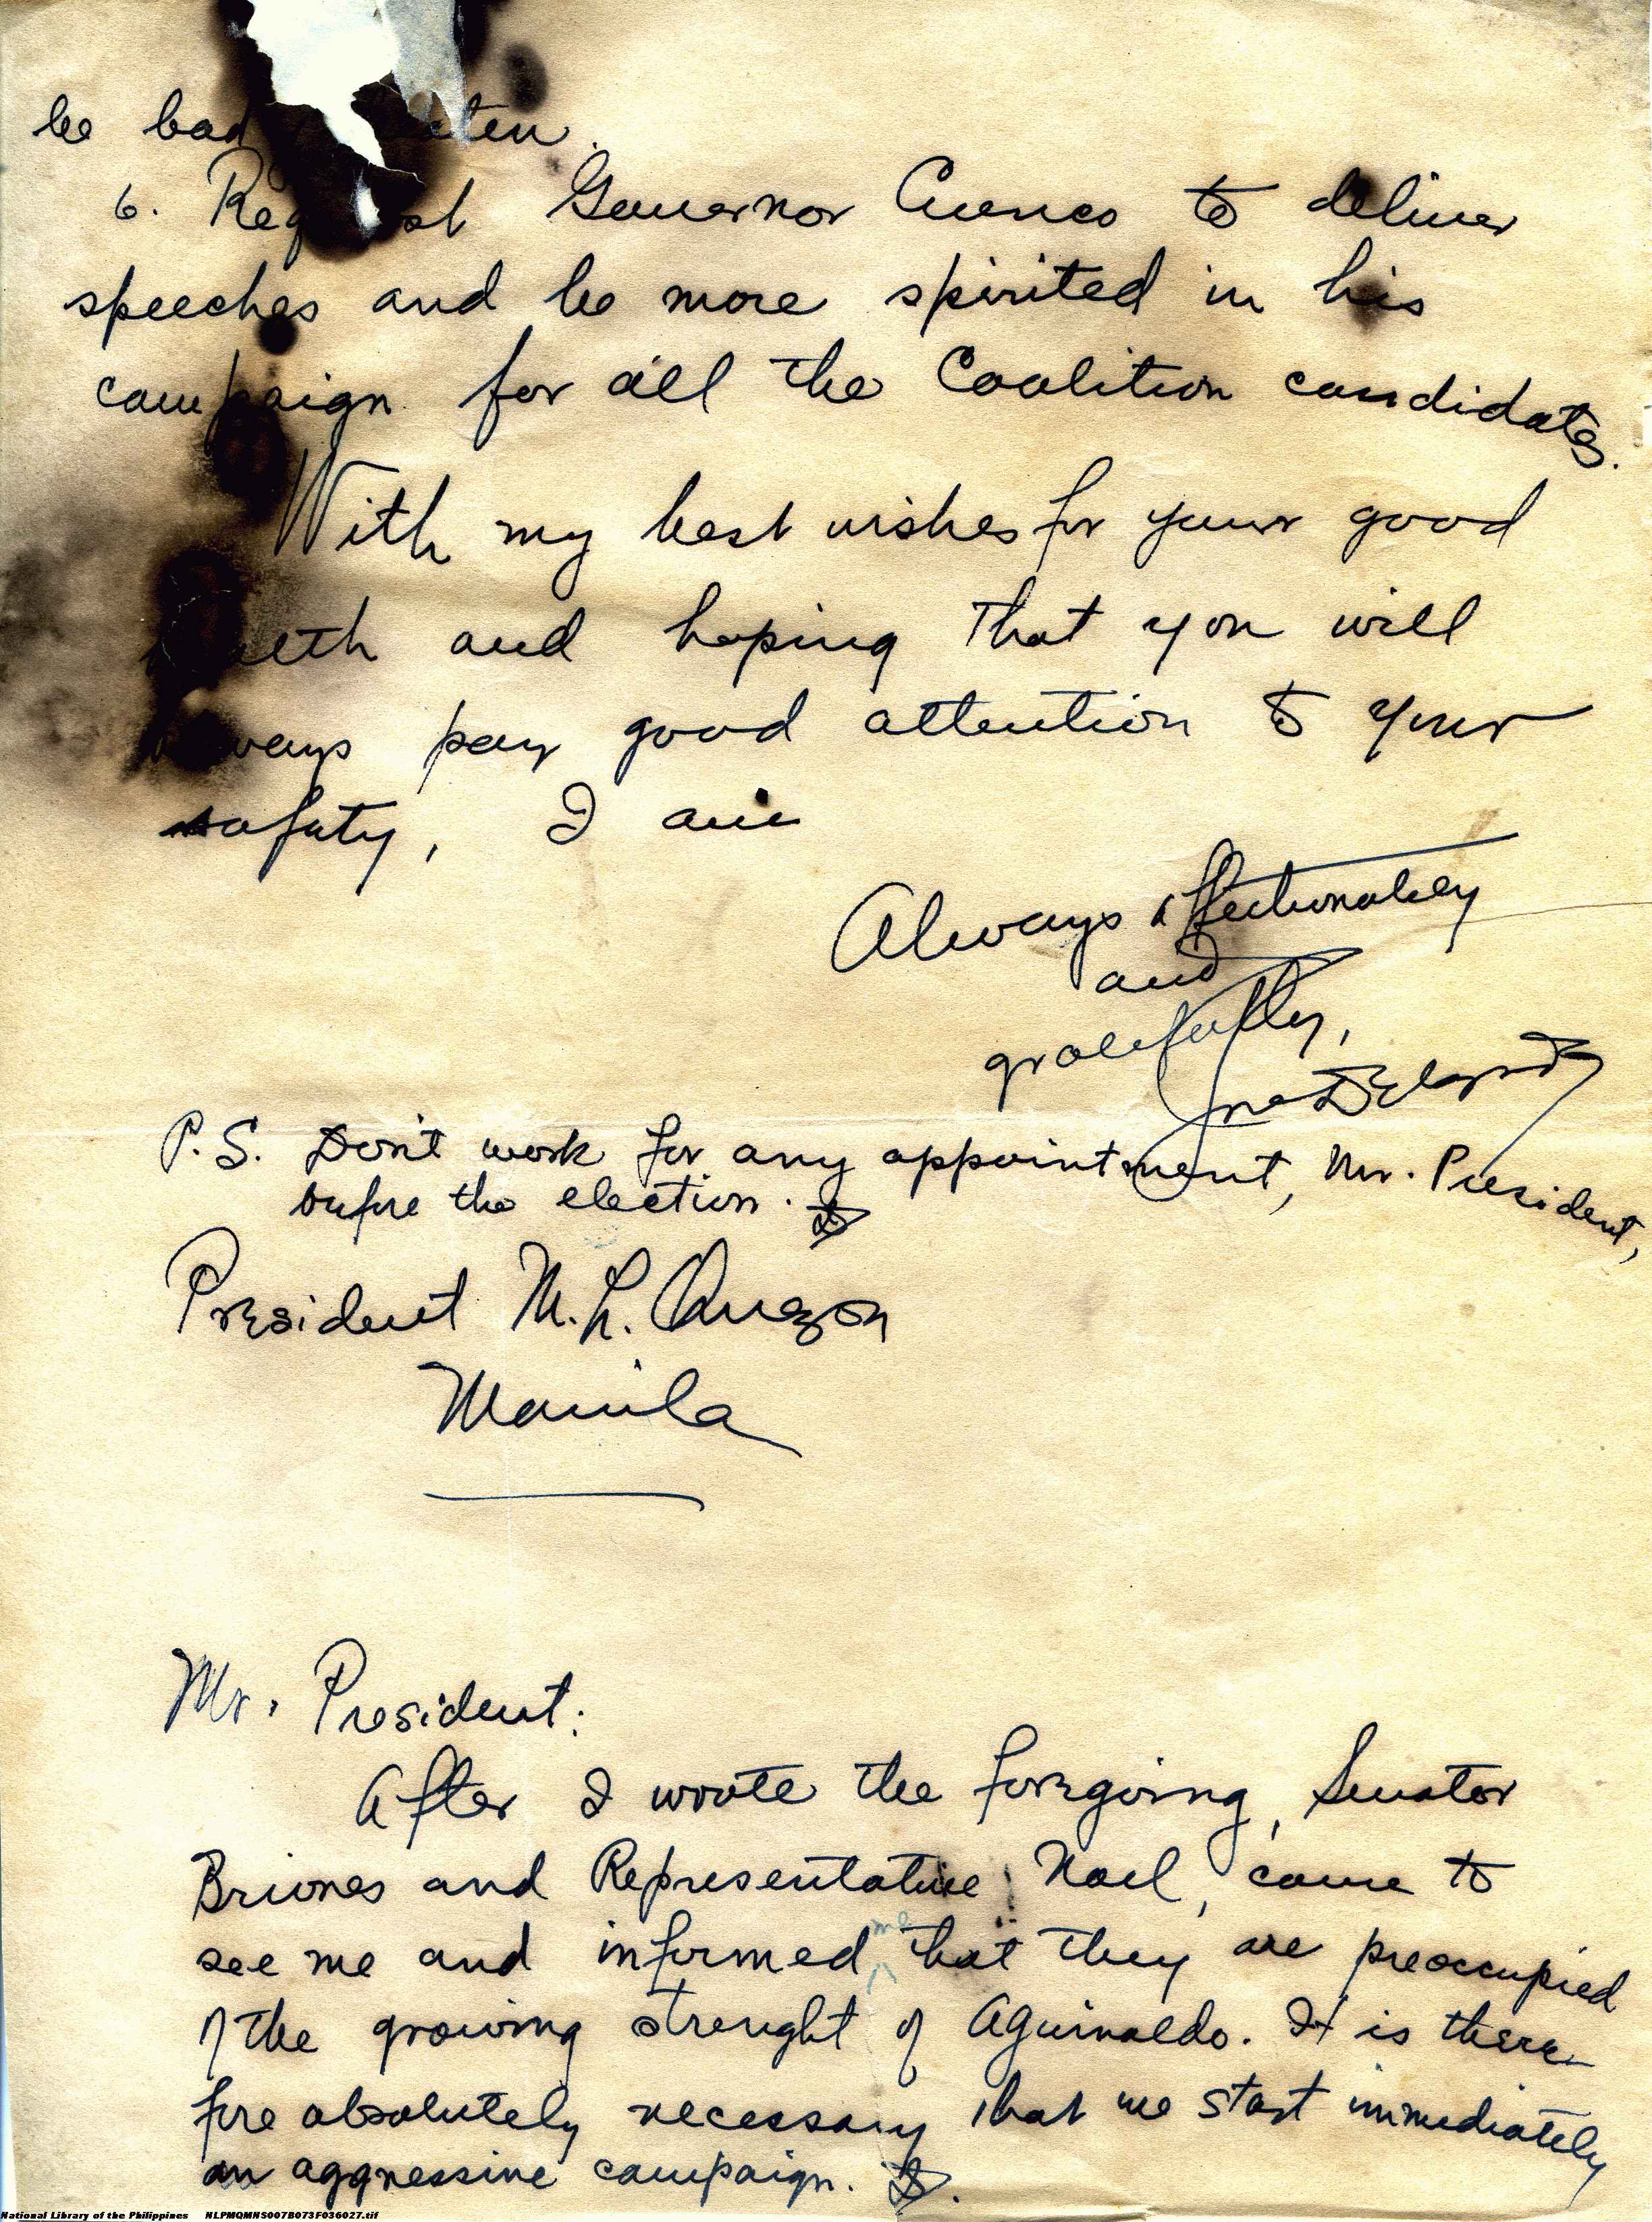 be bad
6. Request Governor Cuenco to deliver
speeches and be more spirited in his
campaign for all the Coalition candidates.
With my best wishes for your good
health and hoping that you will
always pay good attention to your
safety, I am
Always affectionately
and
gratefully,
P.S. Don't work for any appointment, Mr. President,
before the election.
President M. L. Quezon
Manila
Mr. President:
After I wrote the foregoing, Senator
Briones and Representative Noel, came to
see me and informed me that they are preoccupied
of the growing strenght of Aguinaldo. It is there-
fore absolutely necessary that we start immediately
an aggressive campaign.
National Library of the Philippines NLPMQMNS007B073F036027.tif